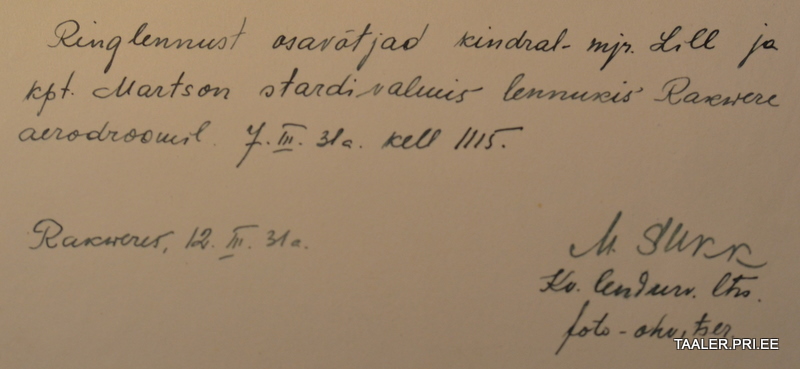 Ringlennust osavõtjad kindral-mjr. Lill ja
kpt. Martson stardivalmis lennukis Rakwere
aerodroomil. 7. III. 31 a. kell 1115.
Rakweres, 12. III. 31 a.
M. Sukk
Kv. lendurv. ltn.
foto-ohvitser
TAALER.PRI.EE